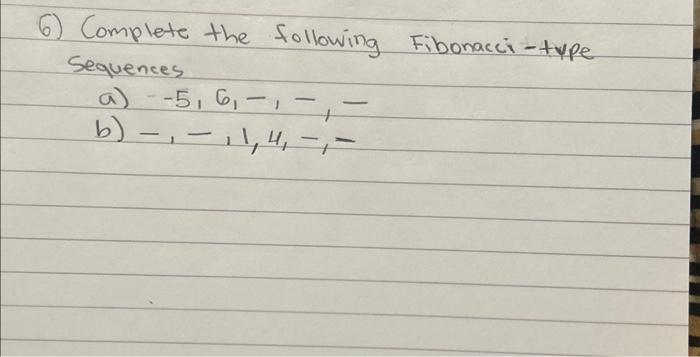 6) Complete the following Fibonacci-type
Sequences
a) -5, 6, _, _, _
b) _, _, 1, 4, _, _